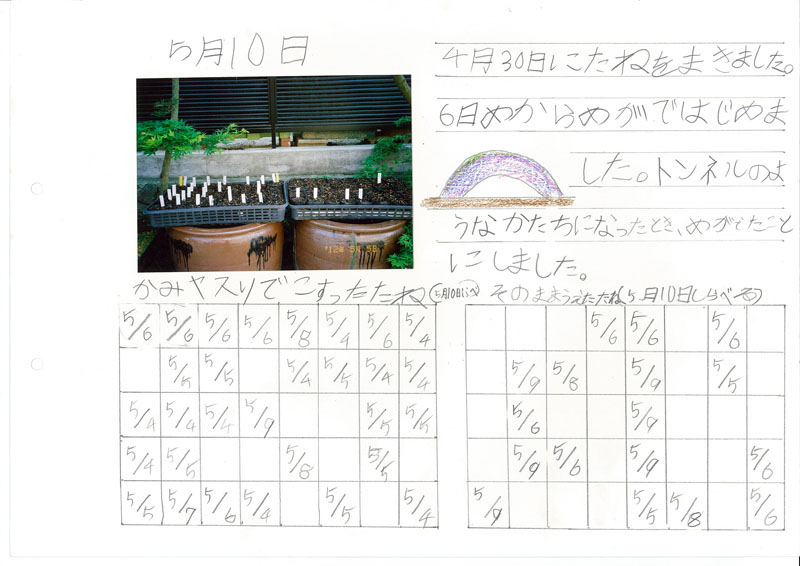 5月10日
4月30日にたねをまきました。
6日めからめがではじめま
した。トンネルのよ
うなかたちになったとき、めがでたこと
にしました。
'12 5 58
かみヤスリでこすったたね(5月10日しらべ)
そのままうえたたね(5月10日しらべ)
5/6 5/6 5/6 5/6 5/8 5/4 5/6 5/4
5/5 5/5 5/4 5/5 5/4 5/4
5/4 5/4 5/4 5/9 5/5 5/5
5/4 5/5 5/8 5/5
5/5 5/7 5/6 5/4 5/5 5/4
5/6 5/6 5/6
5/9 5/8 5/9 5/5
5/6 5/9
5/9 5/6 5/9 5/6
5/9 5/5 5/8 5/6